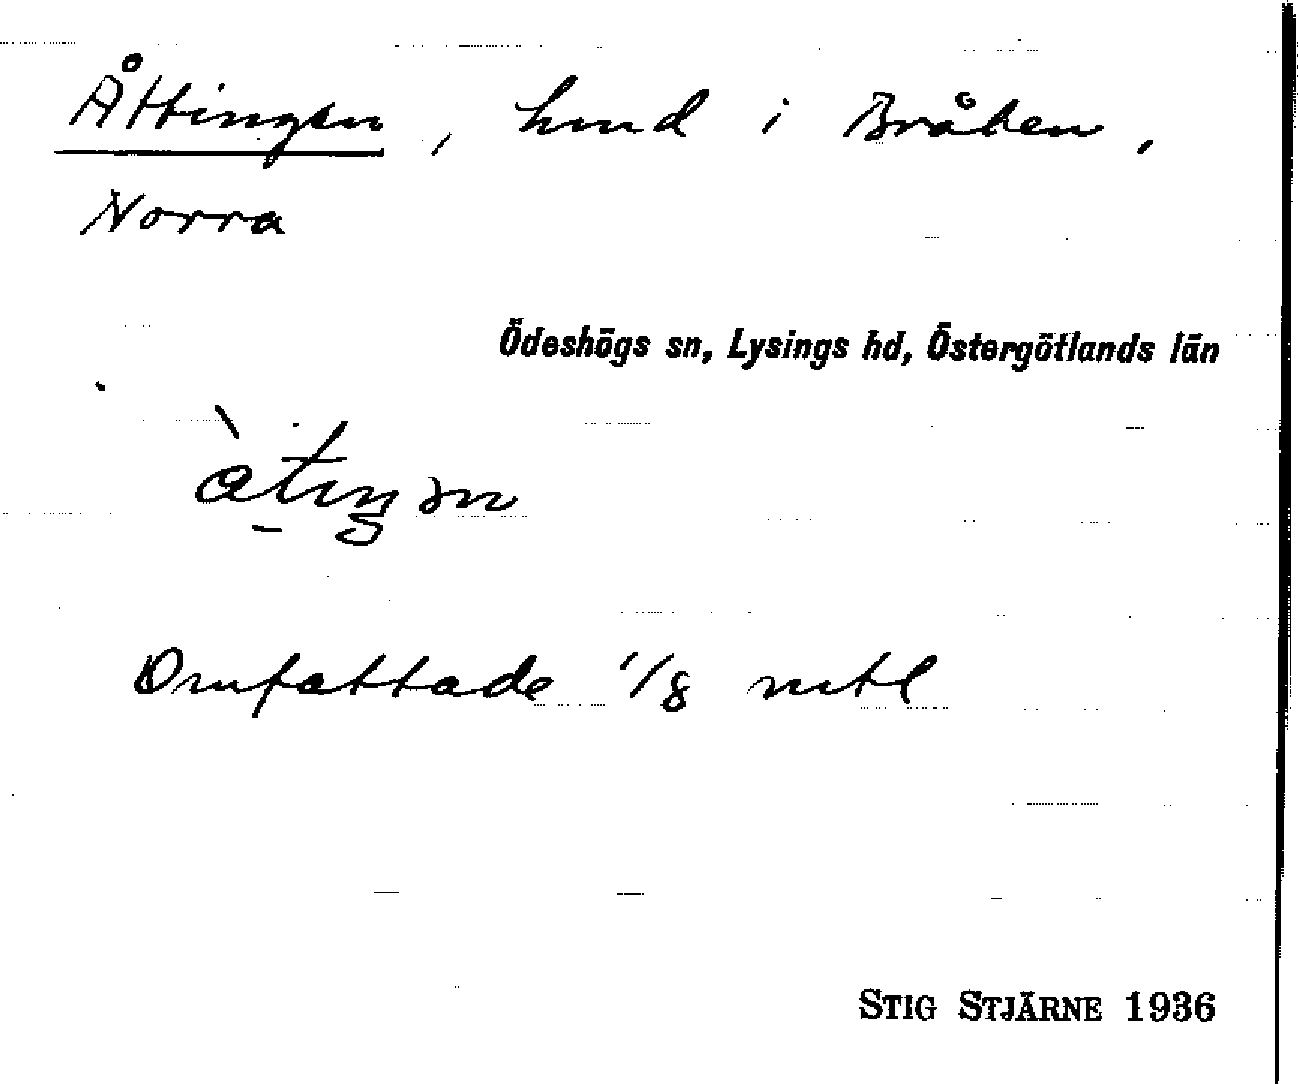 Åttingen, hmd i Bråten,
Norra
Ödeshögs sn, Lysings hd, Östergötlands län
Omfattade 1/8 mtl
STIG STJÄRNE 1936